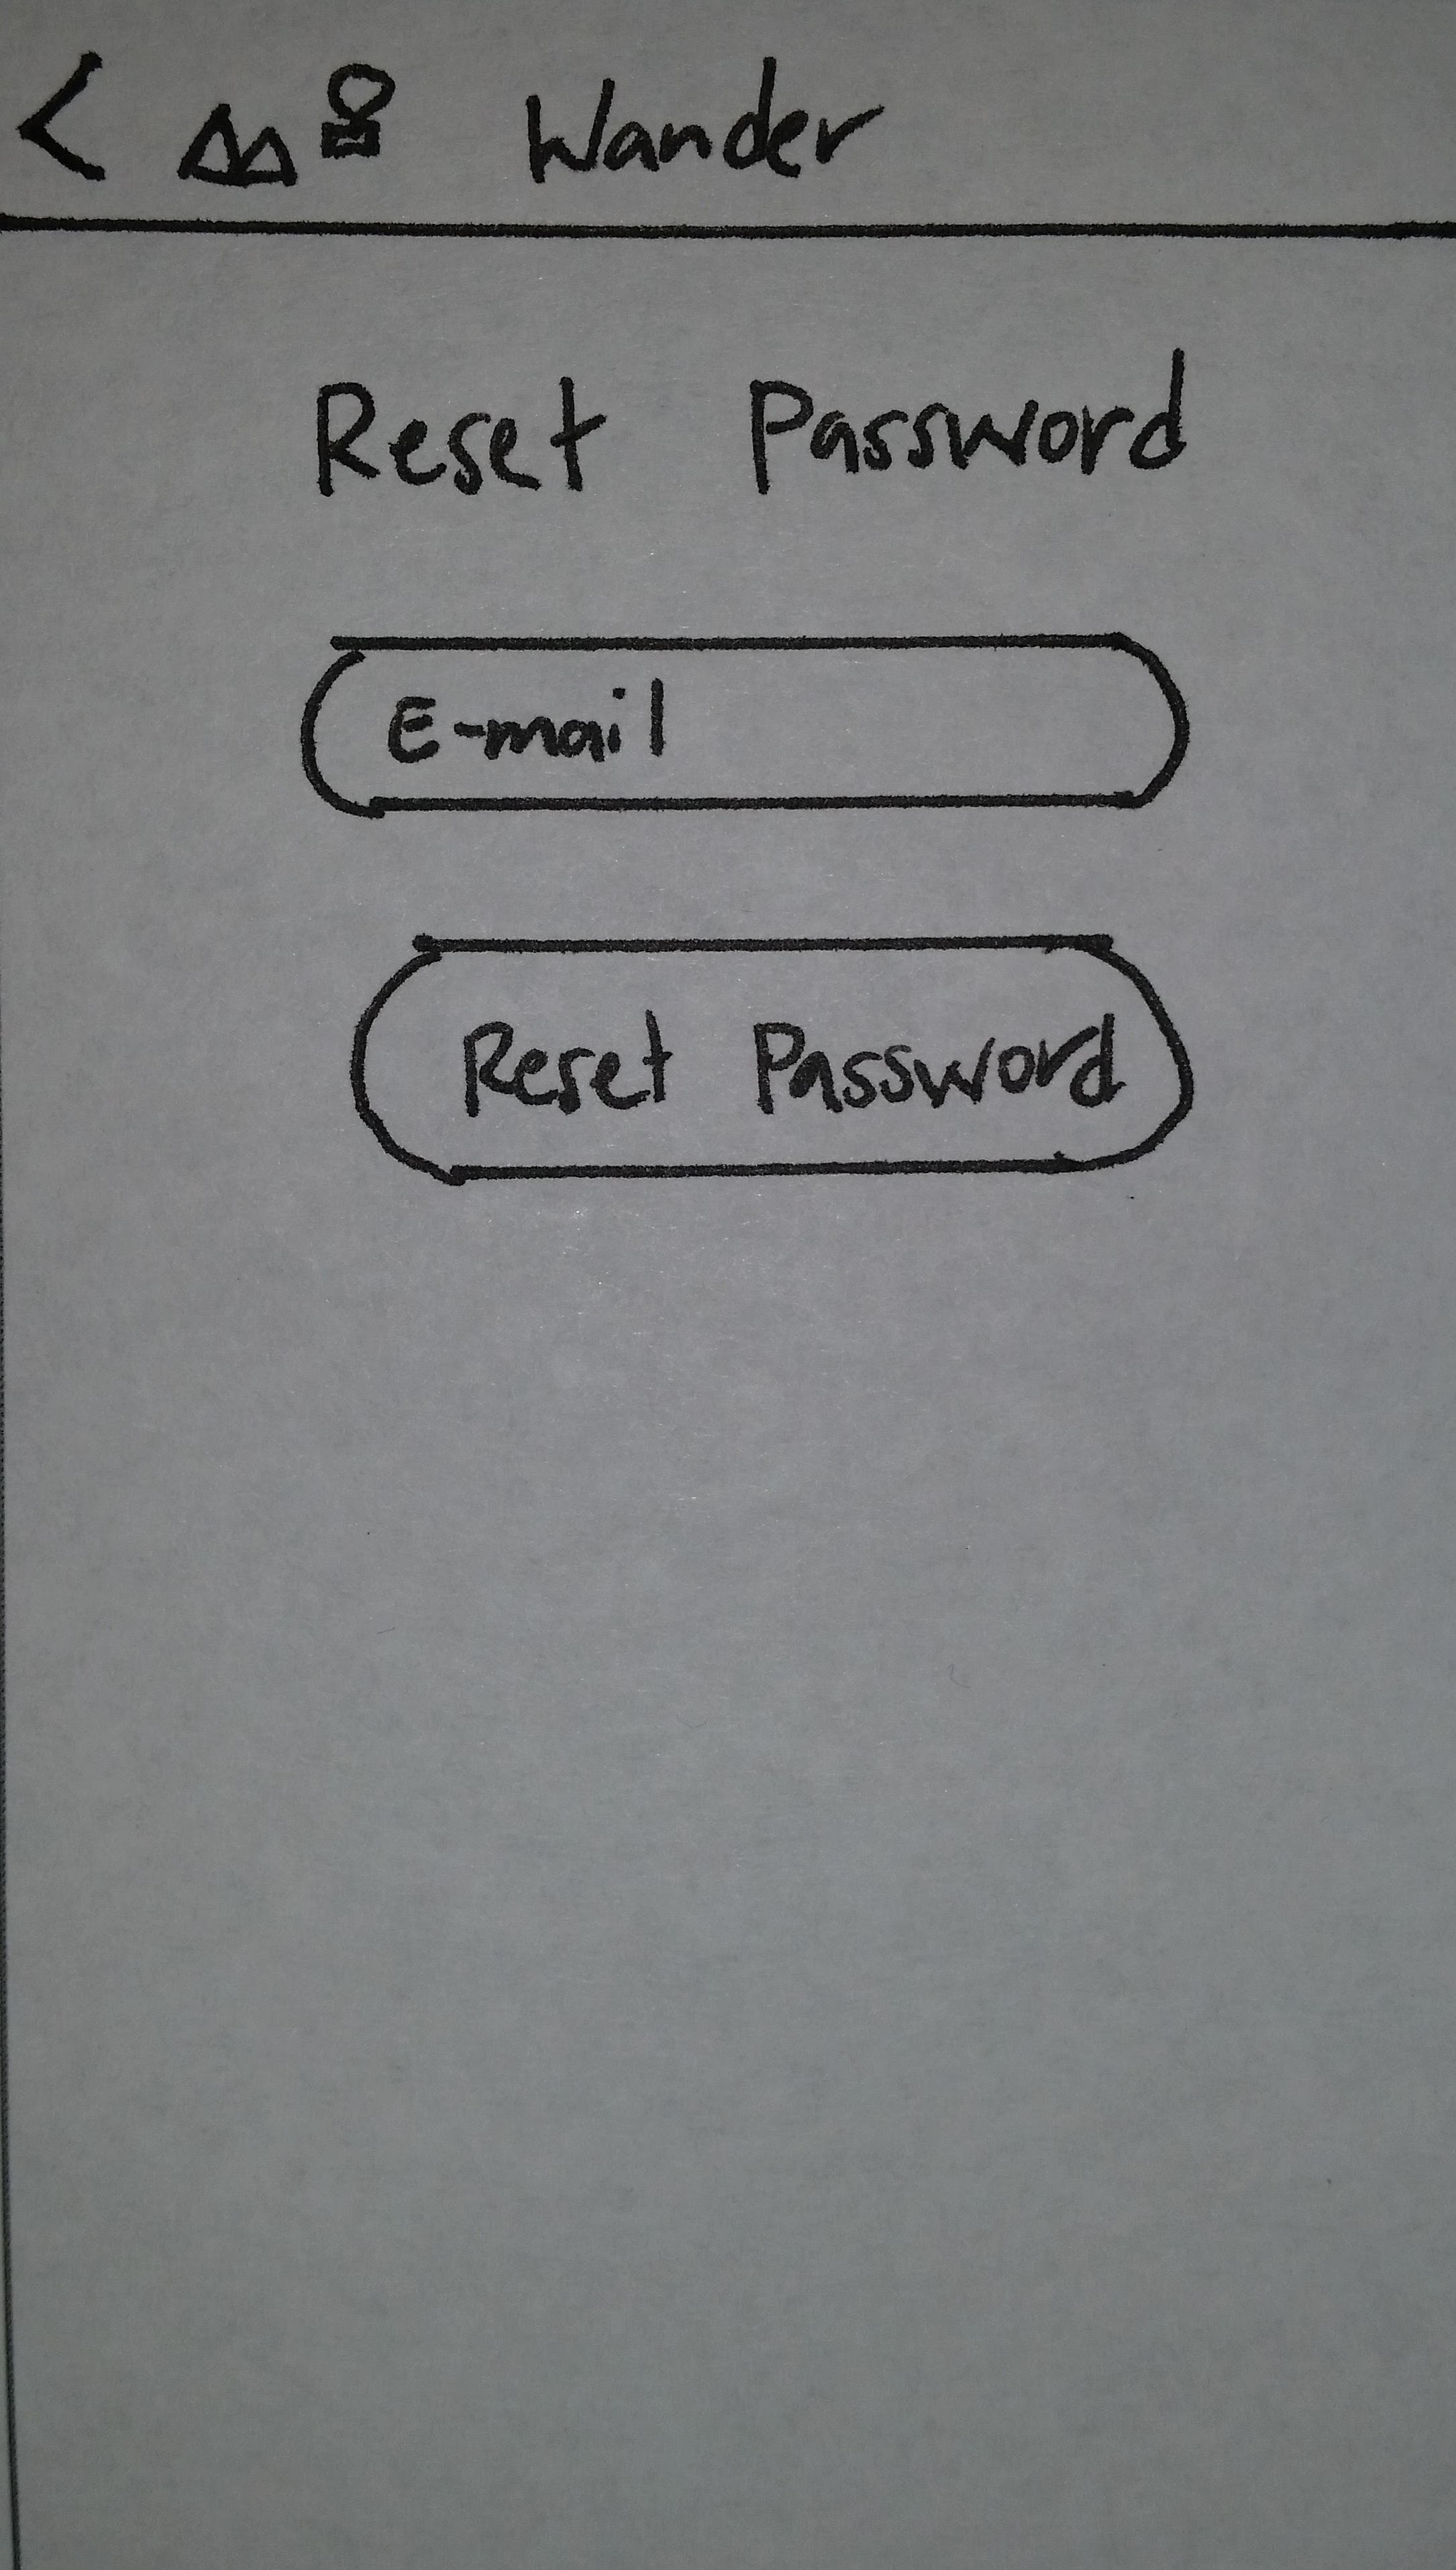 < Wander
Reset Password
E-mail
Reset Password